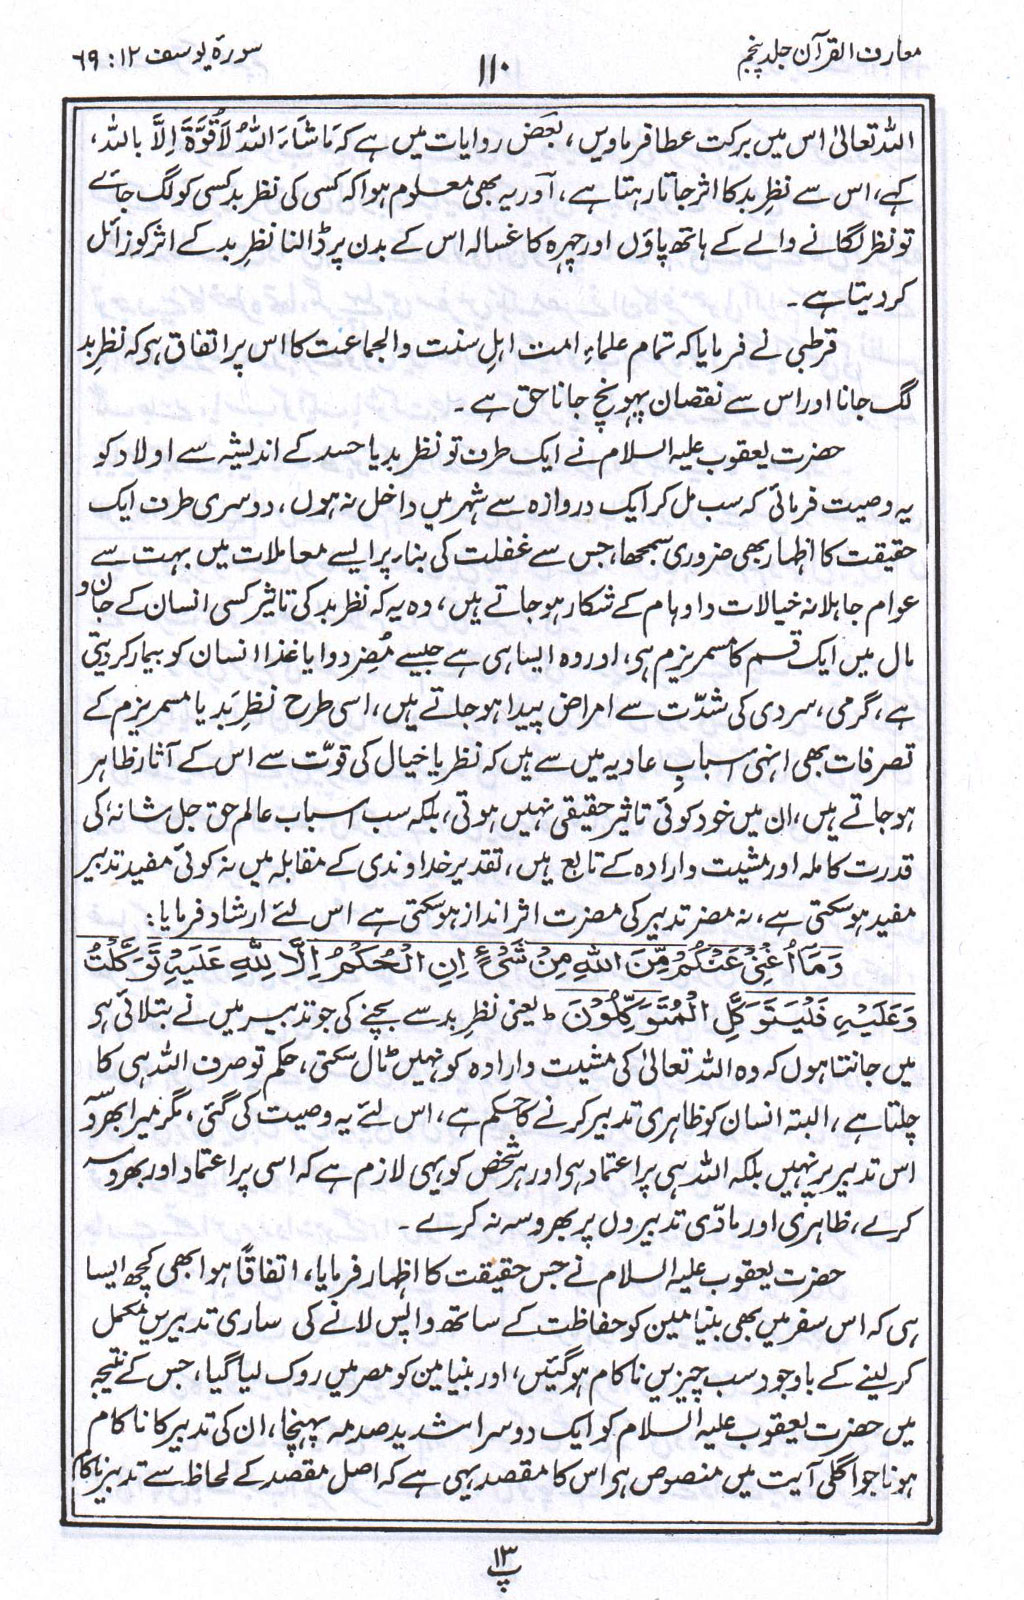 معارف القرآن جلد پنجم
۱۱۰
سورۂ یوسف ۱۲ : ۶۹
اللہ تعالیٰ اس میں برکت عطا فرماویں، بعض روایات میں ہے کہ مَا شَآءَ اللہُ لَا قُوَّۃَ اِلَّا بِاللہ،
کہے، اس سے نظرِ بد کا اثر جاتا رہتا ہے، اور یہ بھی معلوم ہوا کہ کسی کی نظر بد کسی کو لگ جائے
تو نظر لگانے والے کے ہاتھ پاؤں اور چہرہ کا غسالہ اس کے بدن پر ڈالنا نظرِ بد کے اثر کو زائل
کر دیتا ہے۔
قرطبی نے فرمایا کہ تمام علماءِ امت اہلِ سنت والجماعت کا اس پر اتفاق ہو کہ نظرِ بد
لگ جانا اور اس سے نقصان پہونچ جانا حق ہے۔
حضرت یعقوب علیہ السلام نے ایک طرف تو نظر بد یا حسد کے اندیشہ سے اولاد کو
یہ وصیت فرمائی کہ سب مل کر ایک دروازہ سے شہر میں داخل نہ ہوں، دوسری طرف ایک
حقیقت کا اظہار بھی ضروری سمجھا، جس سے غفلت کی بناء پر ایسے معاملات میں بہت سے
عوام جاہلانہ خیالات و اوہام کے شکار ہو جاتے ہیں، وہ یہ کہ نظر بد کی تاثیر کسی انسان کے جان و
مال میں ایک قسم کا مسمریزم ہی، اور وہ ایسا ہی ہے جیسے مُضِر دوا یا غذا انسان کو بیمار کر دیتی
ہے، گرمی، سردی کی شدّت سے امراض پیدا ہو جاتے ہیں، اسی طرح نظرِ بَد یا مسمریزم کے
تصرفات بھی انہی اسبابِ عادیہ میں سے ہیں کہ نظر یا خیال کی قوّت سے اس کے آثار ظاہر
ہو جاتے ہیں، ان میں خود کوئی تاثیر حقیقی نہیں ہوتی، بلکہ سب اسباب عالم حق جل شانہٗ کی
قدرت کاملہ اور مشیت و ارادہ کے تابع ہیں، تقدیر خداوندی کے مقابلہ میں نہ کوئی مفید تدبیر
مفید ہو سکتی ہے، نہ مضر تدبیر کی مضرت اثر انداز ہو سکتی ہے اس لئے ارشاد فرمایا:
وَمَآ اُغْنِیْ عَنْکُمْ مِّنَ اللہِ مِنْ شَیْءٍ اِنِ الْحُکْمُ اِلَّا لِلہِ عَلَیْہِ تَوَکَّلْتُ
وَعَلَیْہِ فَلْیَتَوَکَّلِ الْمُتَوَکِّلُوْنَ ط یعنی نظرِ بد سے بچنے کی جو تدبیر میں نے بتلائی ہو
میں جانتا ہوں کہ وہ اللہ تعالیٰ کی مشیت و ارادہ کو نہیں ٹال سکتی، حکم تو صرف اللہ ہی کا
چلتا ہے، البتہ انسان کو ظاہری تدبیر کرنے کا حکم ہے، اس لئے یہ وصیت کی گئی، مگر میرا بھروسہ
اس تدبیر پر نہیں بلکہ اللہ ہی پر اعتماد ہی اور ہر شخص کو یہی لازم ہے کہ اسی پر اعتماد اور بھروسہ
کرے، ظاہری اور مادّی تدبیروں پر بھروسہ نہ کرے۔
حضرت یعقوب علیہ السلام نے جس حقیقت کا اظہار فرمایا، اتفاقًا ہوا بھی کچھ ایسا
ہی کہ اس سفر میں بھی بنیامین کو حفاظت کے ساتھ واپس لانے کی ساری تدبیریں مکمل
کر لینے کے باوجود سب چیزیں ناکام ہو گئیں، اور بنیامین کو مصر میں روک لیا گیا، جس کے نتیجہ
میں حضرت یعقوب علیہ السلام کو ایک دوسرا شدید صدمہ پہنچا، ان کی تدبیر کا ناکام
ہونا جو اگلی آیت میں منصوص ہو اس کا مقصد یہی ہے کہ اصل مقصد کے لحاظ سے تدبیر ناکام
پ ۱۳